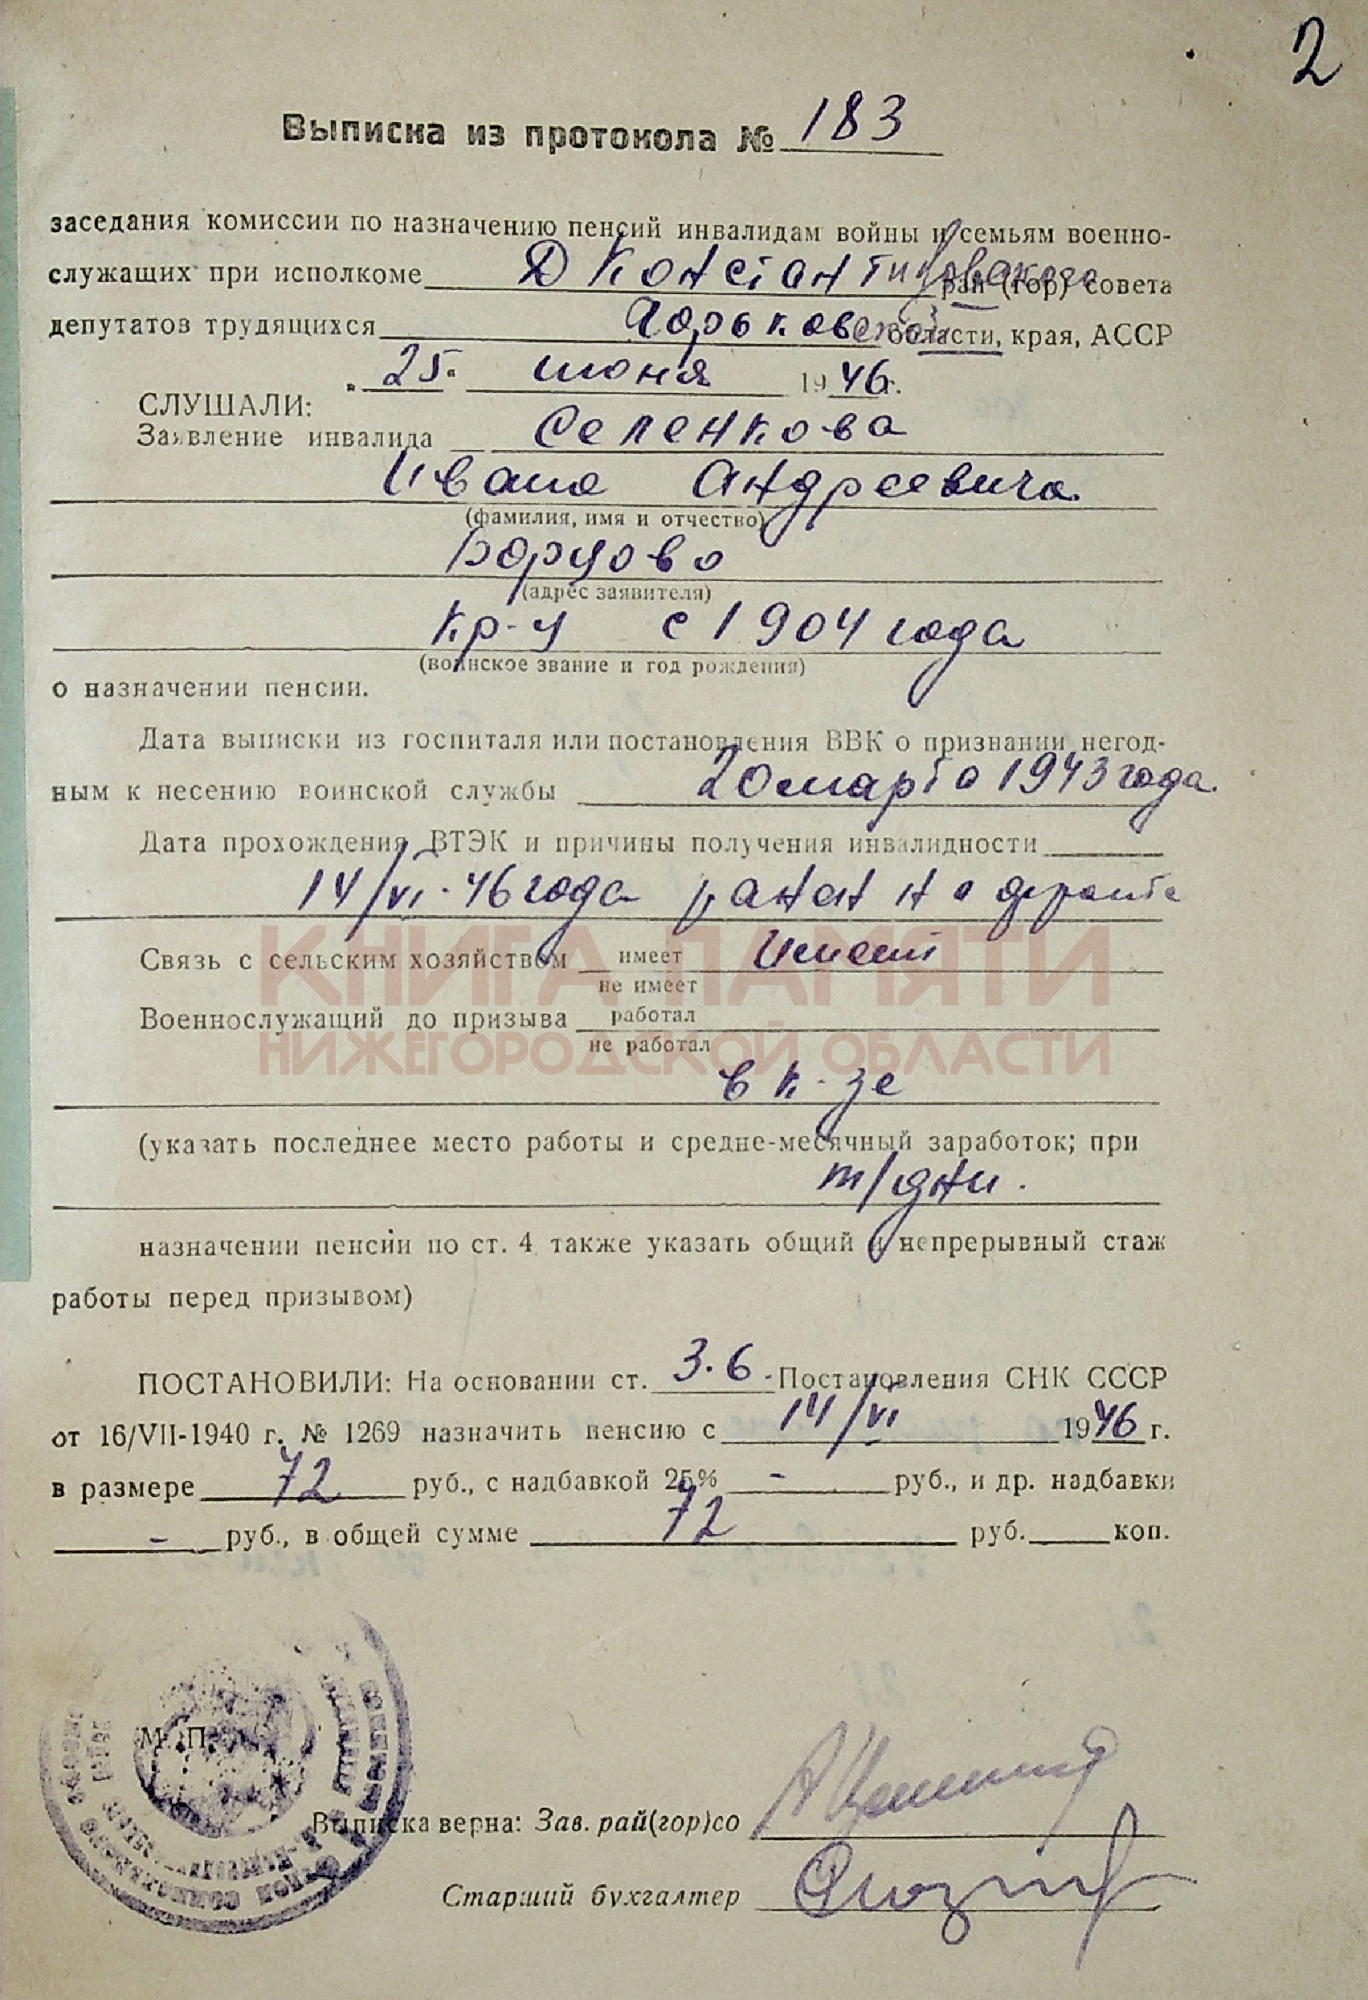 2
Выписка из протокола № 183
заседания комиссии по назначению пенсий инвалидам войны и семьям военно-
служащих при исполкоме Д Константиновского рай (гор) совета
депутатов трудящихся Горьковской области, края, АССР
25. июня 1946г.
СЛУШАЛИ:
Заявление инвалида Селенкова
Ивана Андреевича
(фамилия, имя и отчество)
Борцово
(адрес заявителя)
кр-ц с 1904 года
(воинское звание и год рождения)
о назначении пенсии.
Дата выписки из госпиталя или постановления ВВК о признании негод-
ным к несению воинской службы 20 марта 1943 года.
Дата прохождения ВТЭК и причины получения инвалидности
14/VI-46 года ранен на фронте
Связь с сельским хозяйством имеет Имеет
не имеет
Военнослужащий до призыва работал
не работал
в к-зе
(указать последнее место работы и средне-месячный заработок; при
т/дни.
назначении пенсии по ст. 4 также указать общий и непрерывный стаж
работы перед призывом)
ПОСТАНОВИЛИ: На основании ст. 3.6. Постановления СНК СССР
от 16/VII-1940 г. № 1269 назначить пенсию с 14/VI 1946 г.
в размере 72 руб., с надбавкой 25% - руб., и др. надбавки
- руб., в общей сумме 72 руб. коп.
М. П.
Выписка верна: Зав. рай(гор)со
Старший бухгалтер
КНИГА ПАМЯТИ
НИЖЕГОРОДСКОЙ ОБЛАСТИ